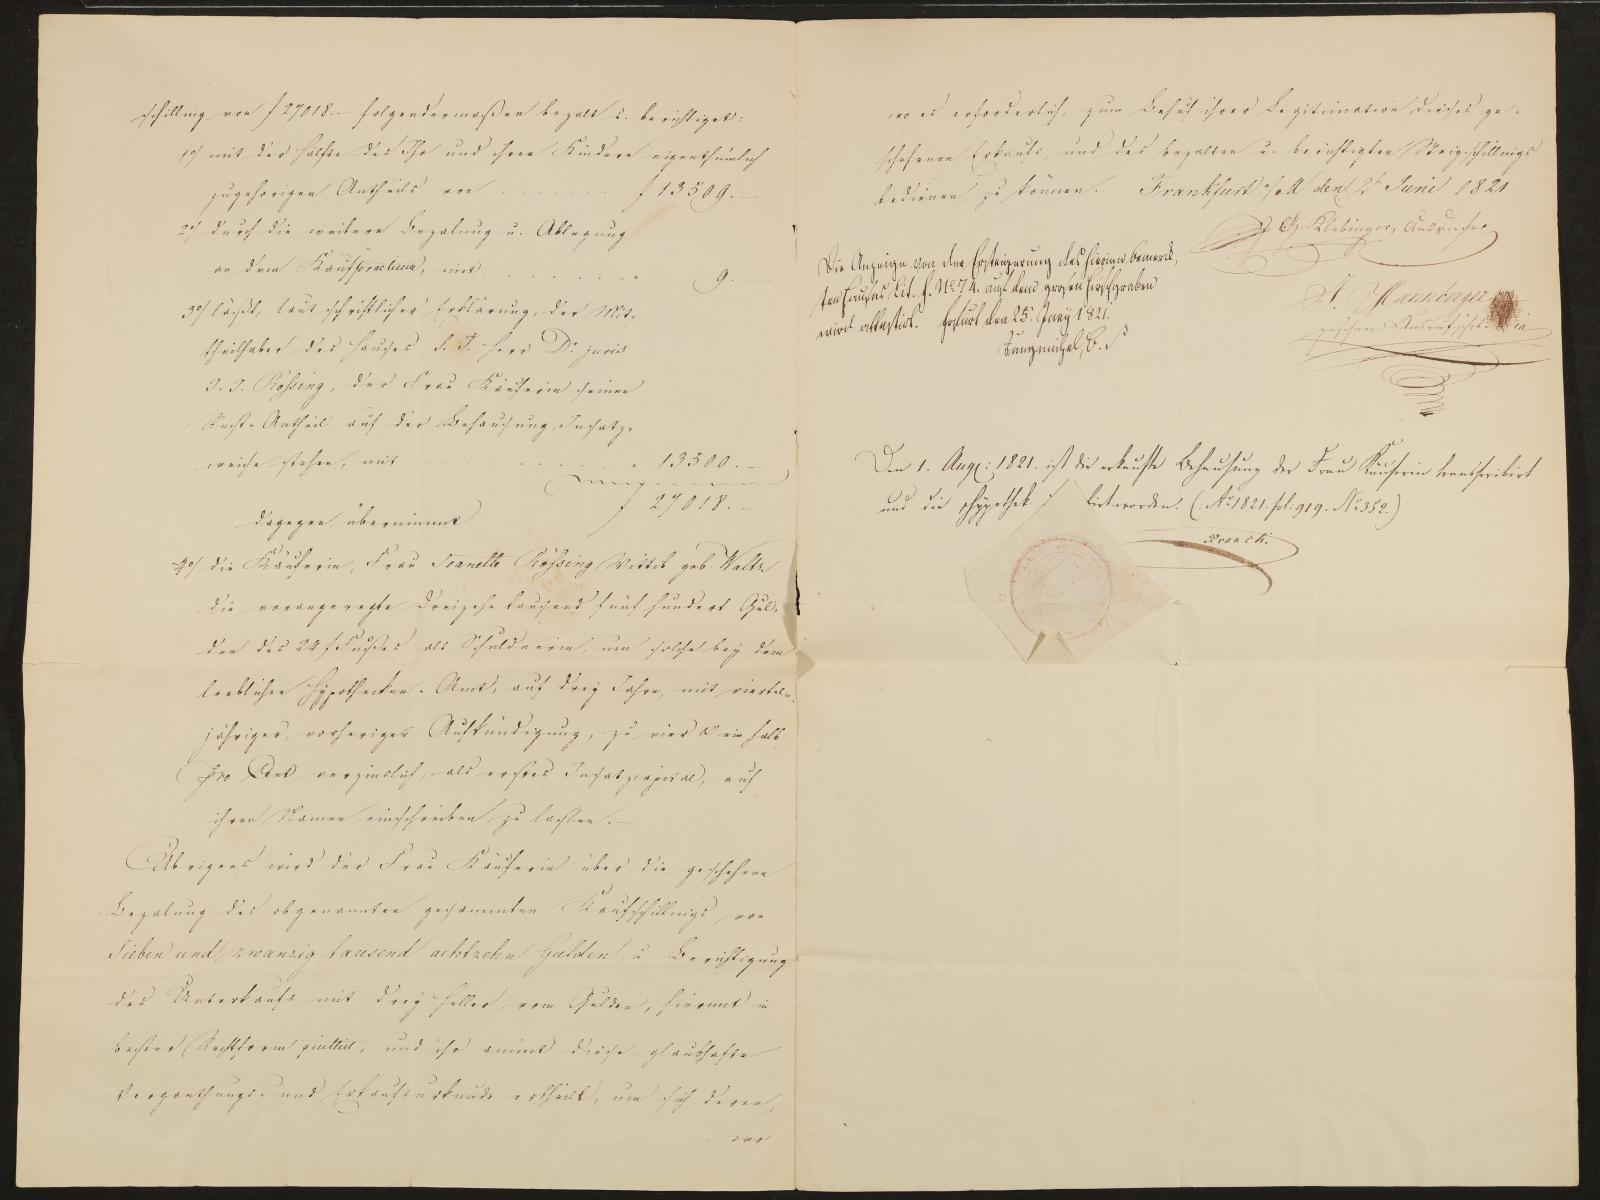 schilling von f 27018.– folgendermaßen bezalt u. berichtiget:
1o) mit der Hälfte des Ihr und ihren Kindern eigenthümlich
zugehörigen Antheils von . . . . . . . . f 13509.–
2o) durch die weitere Bezalung u. Ablegung
an dem Kaufpraetium, mit . . . . . . . . " 9.–
3o) läßt, laut schriftlicher Erklärung, der Mit-
theilhaber des Hauses, S. T. Herr Dr. juris
J. J. Rößing, der Frau Käuferin seinen
Rest-Antheil auf der Behausung Insatz-
weise stehen, mit . . . . . . . . " 13500.–
f 27018.–
dagegen übernimmt
4o) die Käuferin, Frau Jeanette Rößing Wittib geb. Waltz
die vorangeregte Dreizehn tausend fünf hundert Gul-
den des 24 f Fußes als Schuldnerin, um solche bey dem
loeblichen Hypotheken-Amt, auf drey Jahre, mit viertel-
jähriger, vorheriger Aufkündigung, zu vier & ein halb
pro Cent verzinslich, als erstes Insatzcapital, auf
ihren Namen einschreiben zu lassen.–
Übrigens wird der Frau Käuferin über die geschehene
Bezalung des obgenannten gesammten Kaufschillings von
Sieben und zwanzig tausend achtzehn Gulden u. Berichtigung
des Unterkaufs mit drey Heller vom Gulden, hiermit in
bester Rechtsform quittirt, und ihr annit diese glaubhafte
Verganthungs- und Erkaufsurkunde ertheilt, um sich deren,
wo
wo es erforderlich, zum Behuf ihrer Legitimation dieses ge-
schehenen Erkaufs, und des bezalten u. berichtigten Steigschillings
bedienen zu können. Frankfurt a/M den 2t Juni 1821
J. G. Klebinger, Ausrufer
A. Hannberger
geschwor. Ausrufschr.
Die Anzeige von der Ersteigerung des hierinn bemerk-
ten Hauses Lit. F. No. 74. auf dem grosen Hirschgraben
wird attestirt. Frfurt den 25. Juny 1821.
Den 1. Aug: 1821. ist die erkaufte Behausung der Frau Käuferin transscribirt
und die Hypothek worden. (: Ao 1821. fol: 919. No 352.)